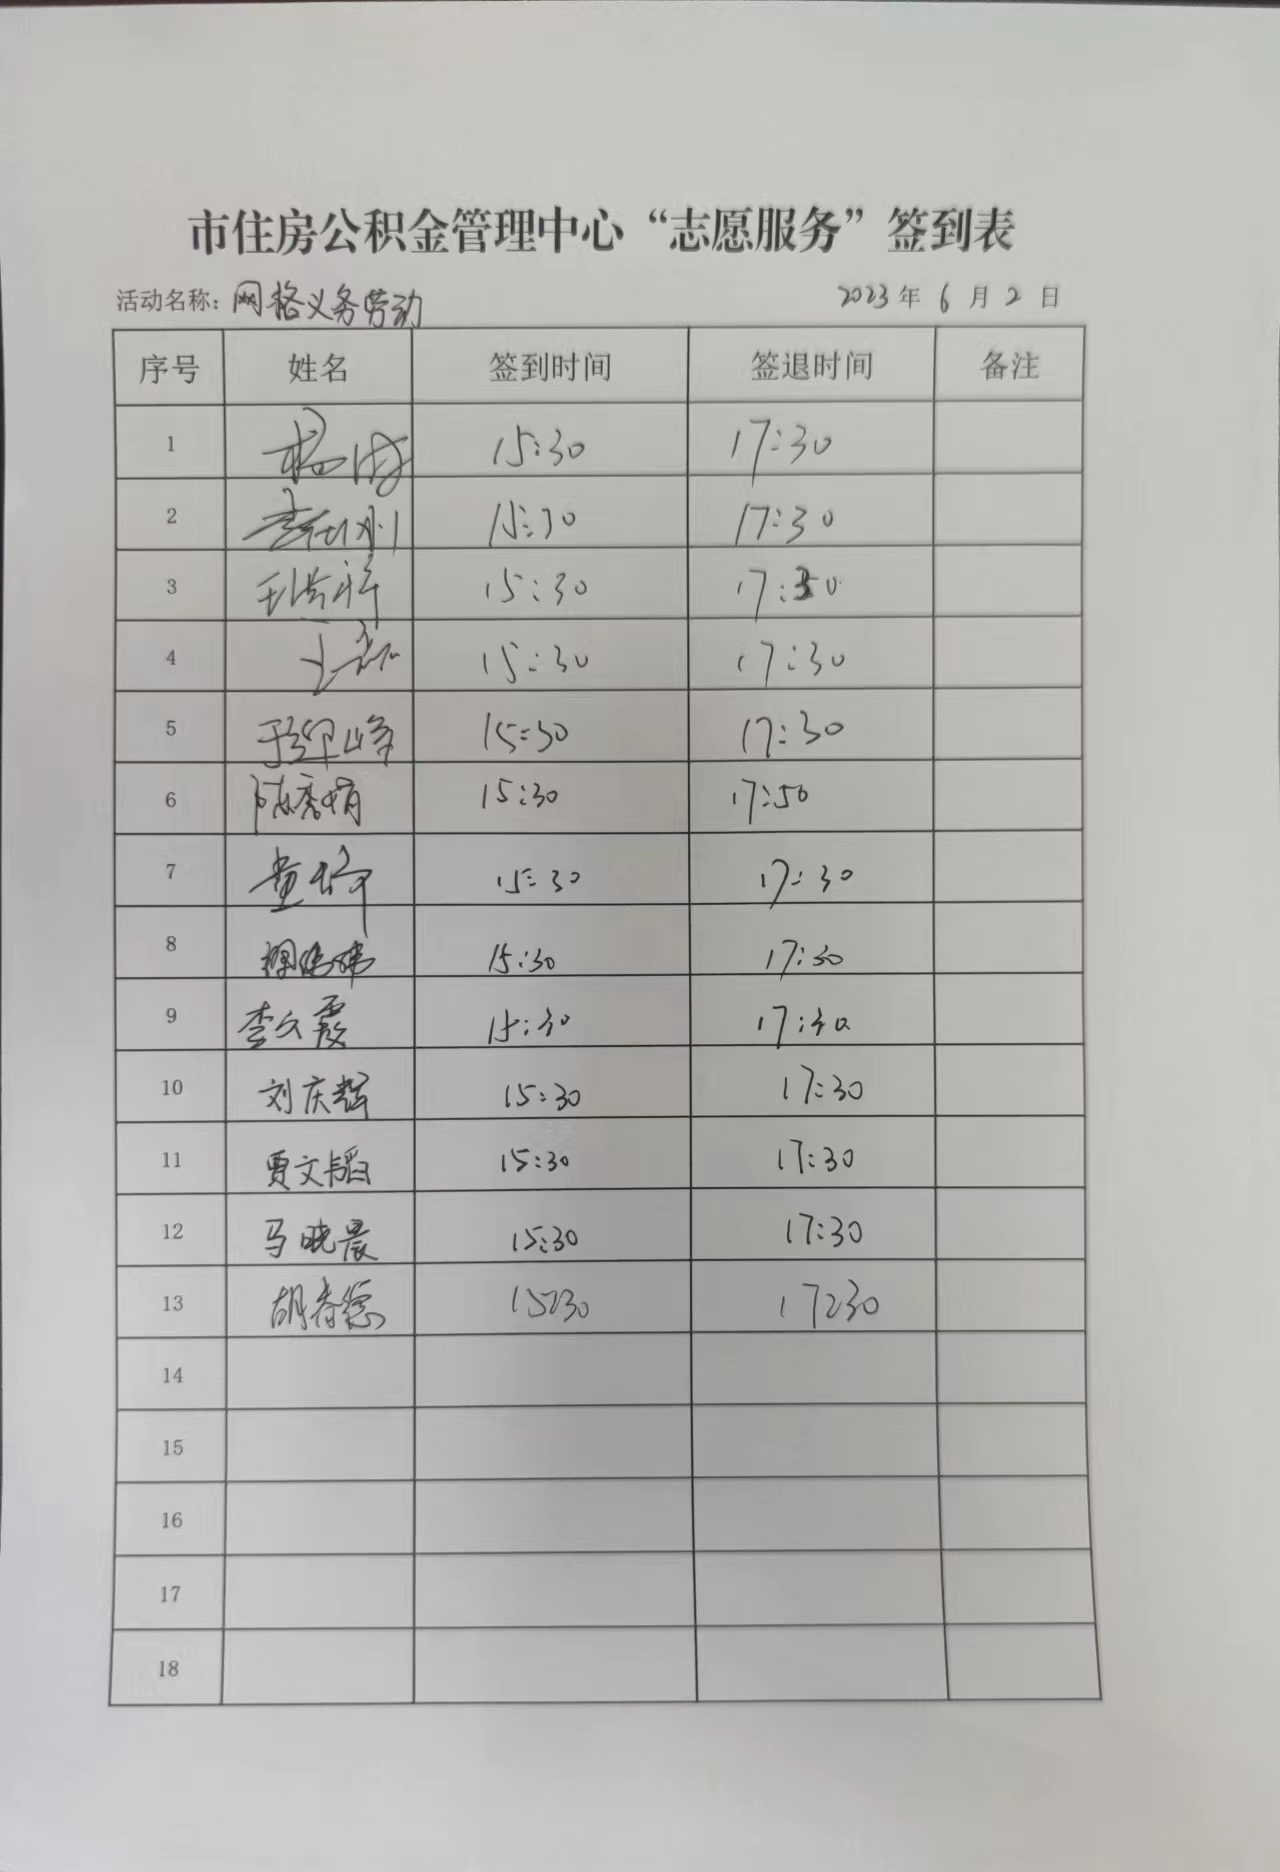 市住房公积金管理中心“志愿服务”签到表
活动名称：网格义务劳动 2023年 6 月 2 日
序号 姓名 签到时间 签退时间 备注
1 15:30 17:30
2 15:30 17:30
3 15:30 17:30
4 15:30 17:30
5 15:30 17:30
6 陈秀娟 15:30 17:50
7 15:30 17:30
8 15:30 17:30
9 李久霞 15:30 17:30
10 刘庆辉 15:30 17:30
11 贾文韬 15:30 17:30
12 马晓晨 15:30 17:30
13 胡春德 15:30 17:30
14
15
16
17
18